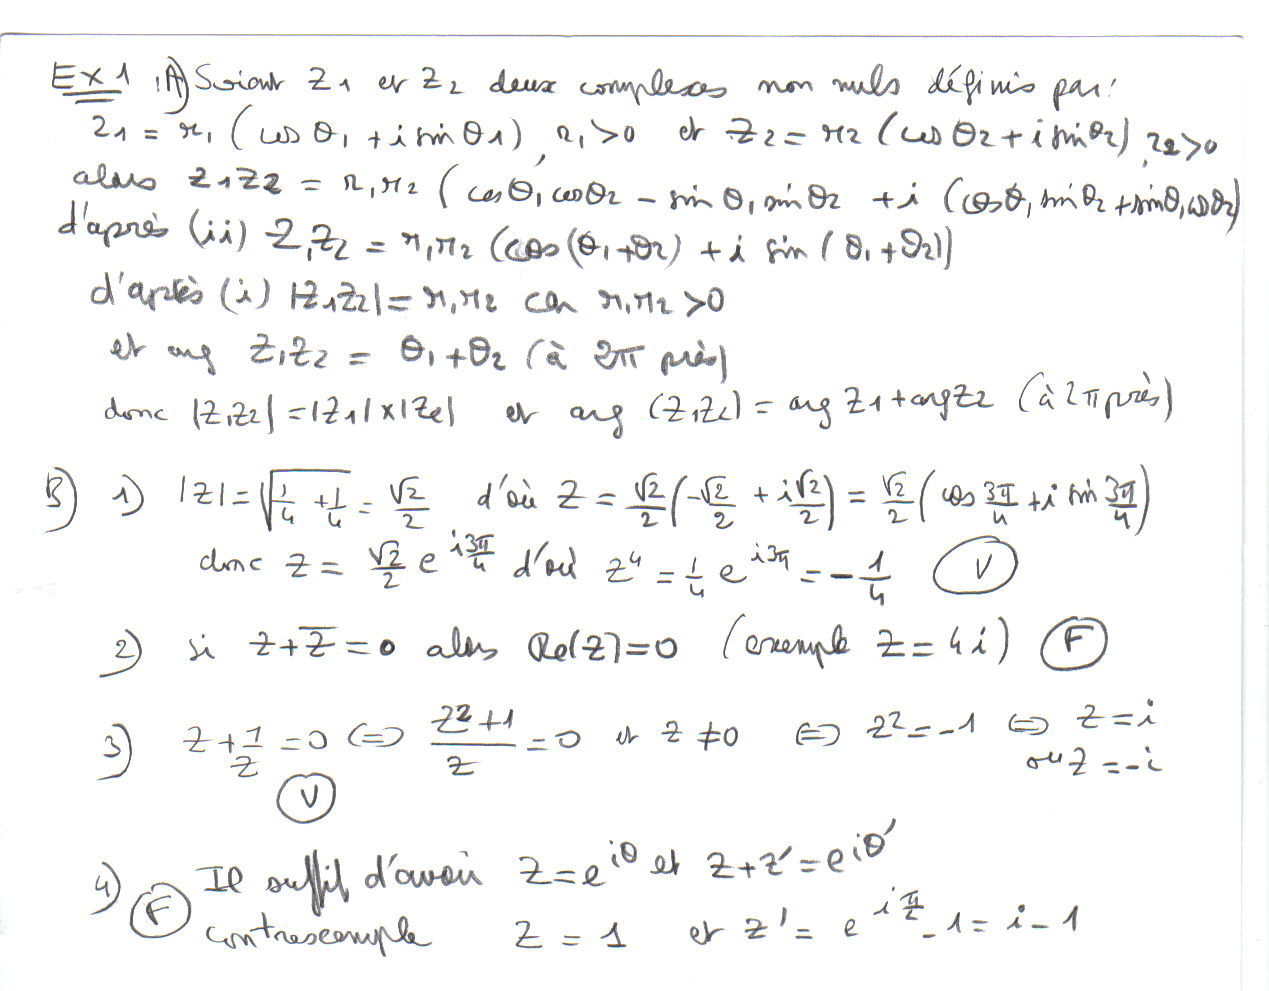 Ex 1 A) Soient Z1 et Z2 deux complexes non nuls définis par:
Z1 = r1 (cos θ1 + i sin θ1), r1 > 0 et Z2 = r2 (cos θ2 + i sin θ2), r2 > 0
alors Z1Z2 = r1r2 (cos θ1 cos θ2 − sin θ1 sin θ2 + i (cos θ1 sin θ2 + sin θ1 cos θ2)
d'après (ii) Z1Z2 = r1r2 (cos (θ1 + θ2) + i sin (θ1 + θ2))
d'après (i) |Z1Z2| = r1r2 car r1r2 > 0
et arg Z1Z2 = θ1 + θ2 (à 2π près)
donc |Z1Z2| = |Z1| × |Z2| et arg (Z1Z2) = arg Z1 + arg Z2 (à 2π près)
B) 1) |Z| = √(1/4 + 1/4) = √2/2 d'où Z = √2/2 (-√2/2 + i√2/2) = √2/2 (cos 3π/4 + i sin 3π/4)
donc Z = √2/2 e^(i3π/4) d'où Z⁴ = 1/4 e^(i3π) = − 1/4 V
2) si Z + Z̅ = 0 alors Re(Z) = 0 (exemple Z = 4i) F
3) Z + 1/Z = 0 ⇔ (Z² + 1)/Z = 0 et Z ≠ 0 ⇔ Z² = −1 ⇔ Z = i
ou Z = −i
V
4) Il suffit d'avoir Z = e^(iθ) et Z + Z' = e^(iθ')
F contrexemple Z = 1 et Z' = e^(iπ/2) − 1 = i − 1